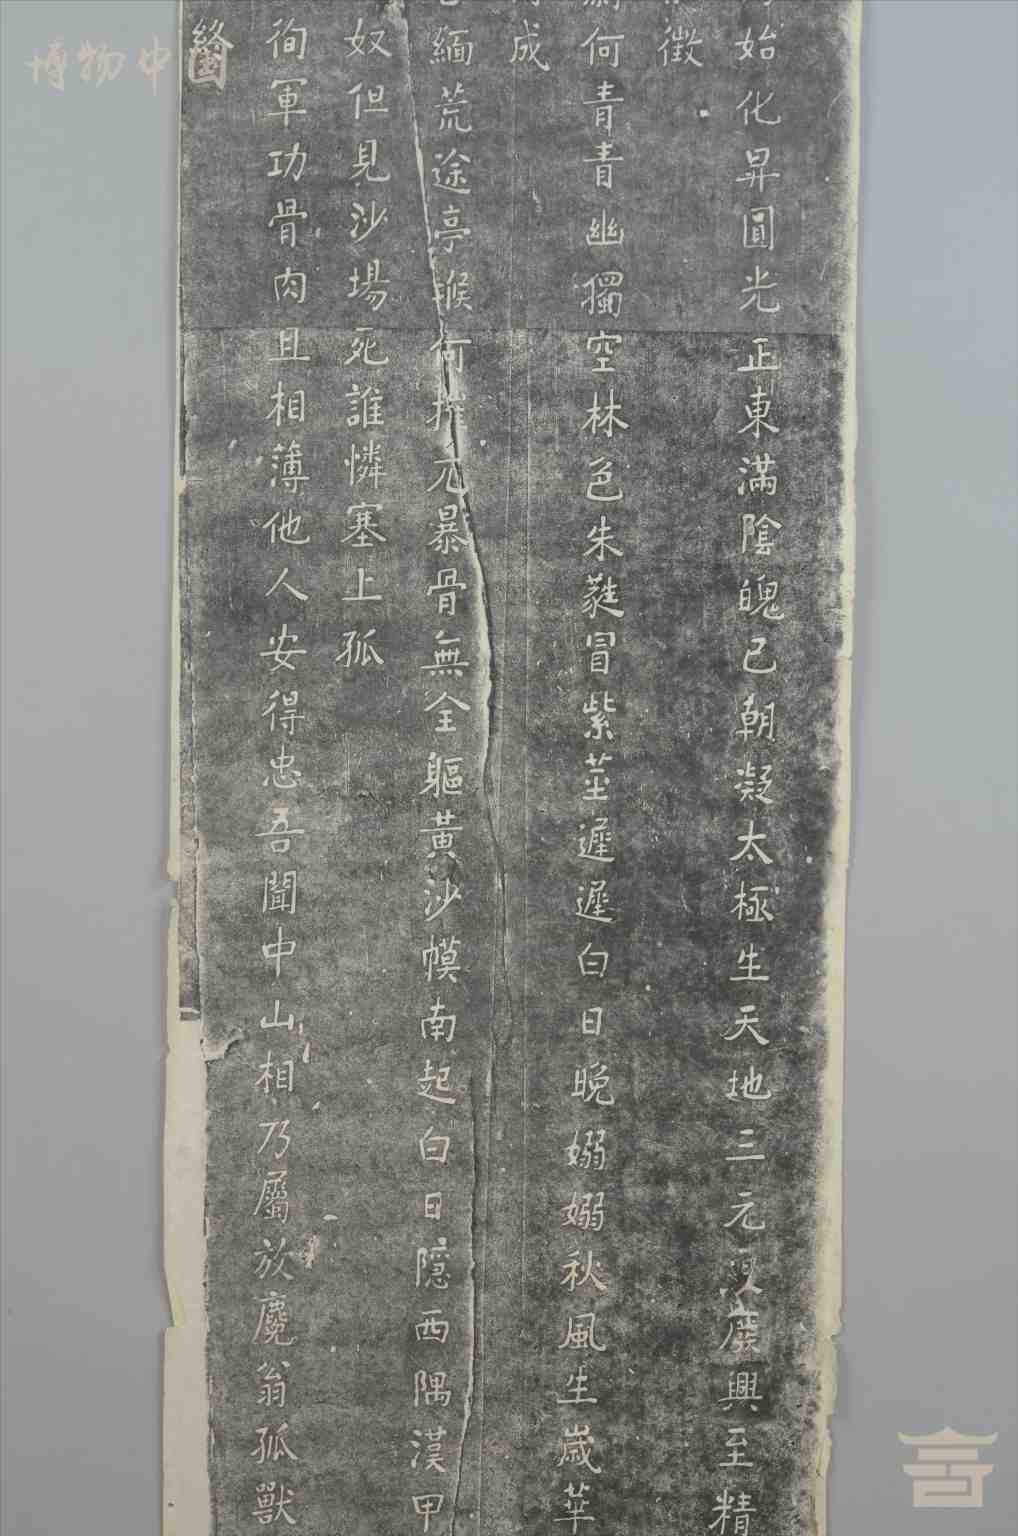 始化昇圓光正東滿陰魄已朝凝太極生天地三元更廢興至精
徵
何青青幽獨空林色朱蕤冒紫莖遲遲白日晚嫋嫋秋風生歲華
成
緬荒途亭堠何摧兀暴骨無全軀黃沙幙南起白日隱西隅漢甲
奴但見沙場死誰憐塞上孤
徇軍功骨肉且相薄他人安得忠吾聞中山相乃屬放麑翁孤獸
終
博物中国